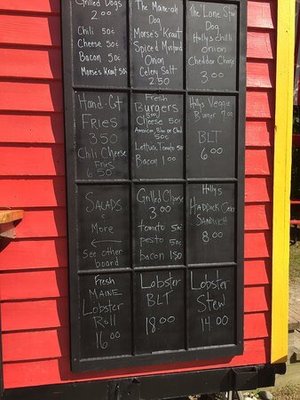 Grilled Dogs
2.00
Chili 50¢
Cheese 50¢
Bacon 50¢
Morse's Kraut 50¢
The Maine-ah
Dog
Morse's Kraut
Spiced Mustard
Onion
Celery Salt
2.50
The Lone Star
Dog
Holly's chili
onion
Cheddar Cheese
3.00
Hand-Cut
Fries
3.50
Chili Cheese
Fries
Fresh
Burgers
Cheese 50¢
American, Blue or Ched
50¢
Lettuce Tomato 50¢
Bacon 1.00
Holly's Veggie
Burger 7.00
BLT
6.00
Salads
&
More
←
See other
board
Grilled Cheese
3.00
tomato 50¢
pesto 50¢
bacon 1.50
Holly's
Haddock
Sandwich
8.00
Fresh
Maine
Lobster
Roll
16.00
Lobster
BLT
18.00
Lobster
Stew
14.00